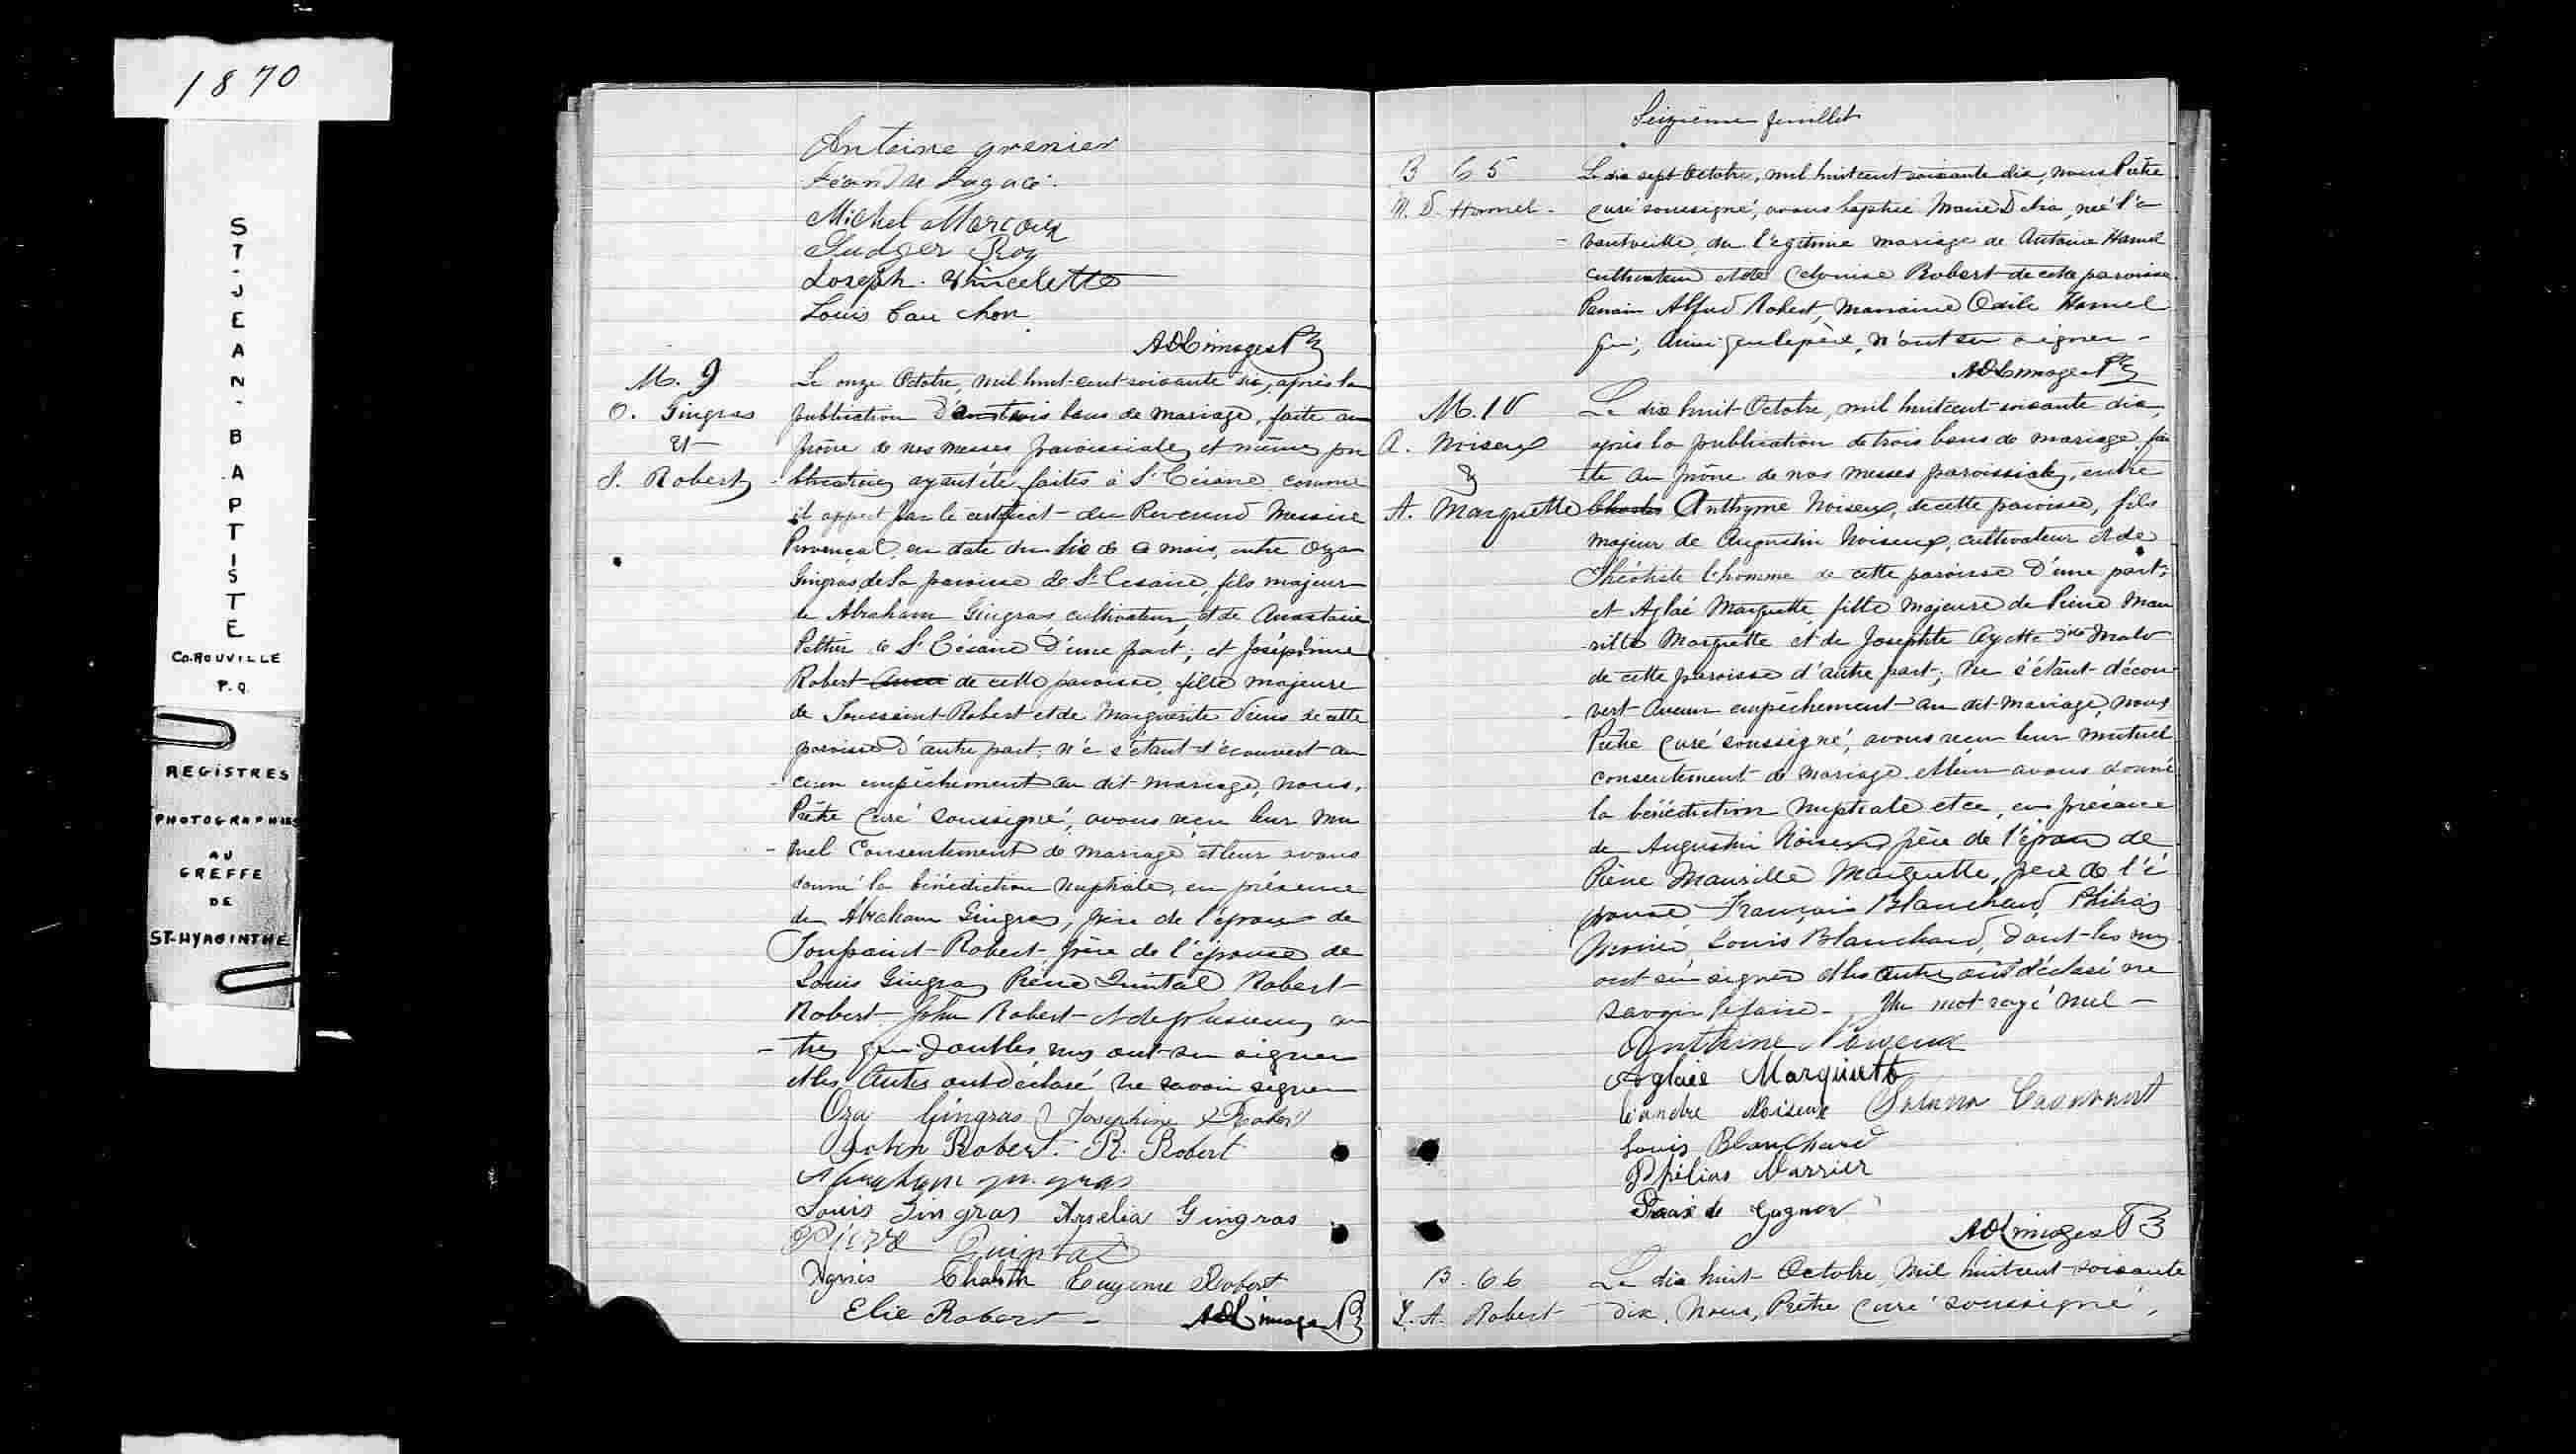 1870
ST-JEAN-BAPTISTE
Co. ROUVILLE
P.Q.
REGISTRES
PHOTOGRAPHIES
AU
GREFFE
DE
ST-HYACINTHE
Antoine Grenier
Michel Marcoux
Gudger Roy
Joseph Vincelette
Louis Cauchon
M. 9
O. Gingras
Et
J. Robert
Le onze Octobre, mil huit-cent-soixante dix, après la
publication de trois bans de mariage, faite au
prône de nos messes paroissiales et mêmes pu
blications ayant été faites à St Césaire comme
il appert par le certificat du Reverend Messire
Provençal, en date du dix de ce mois, entre Oza
Gingras de la paroisse de St Cesaire, fils majeur
de Abraham Gingras, cultivateur, et de Anastasie
de St Césaire d'une part; et Joséphine
Robert de cette paroisse, fille majeure
de Toussaint Robert et de Marguerite Viens de cette
paroisse d'autre part; ne s'étant découvert au
cun empêchement au dit mariage, nous,
Prêtre Curé soussigné, avons reçu leur mu
tuel Consentement de mariage et leur avons
donné la bénédiction nuptiale, en présence
de Abraham Gingras, père de l'époux de
Toussaint Robert père de l'épouse de
Louis Gingras Pierre Quintal Robert
Robert John Robert et de plusieurs au
tres qui dont les uns ont su signer
et les Autres ont déclaré ne savoir signer
Oza Gingras Josephine Robert
John Robert. R. Robert
Louis Gingras Arselia Gingras
Pierre Quintal
Agnès Eugenie Robert
Elie Robert
Seizième feuillet
B 65
M. D. Hamel
Le dix sept Octobre, mil huit cent soixante dix, nous Prêtre
curé soussigné, avons baptisé Marie Delia, née l'a
vant veille, du légitime mariage de Antoine Hamel
cultivateur et de Celanise Robert de cette paroisse.
Parrain Alfred Robert, Marraine Odile Hamel
qui, ainsi que le père, n'ont su signer
M. 10
A. Noiseux
&
A. Marquette
Le dix huit Octobre, mil huit cent soixante dix,
après la publication de trois bans de mariage fai
te au prône de nos messes paroissiales, entre
Charles Anthyme Noiseux, de cette paroisse, fils
majeur de Augustin Noiseux, cultivateur et de
Théotiste Lhomme de cette paroisse d'une part;
et Aglaé Marquette, fille majeure de Pierre Mau
rille Marquette et de Josephte Ayotte dite Malo
de cette paroisse d'autre part; ne s'étant décou
vert aucun empêchement au dit mariage, nous
Prêtre Curé soussigné, avons reçu leur mutuel
consentement de mariage et leur avons donné
la bénédiction nuptiale et ce, en présence
de Augustin Noiseux père de l'époux de
Pierre Maurille Marquette, père de l'é
pouse François Blanchard,
Louis Blanchard, dont les uns
ont su signer et les autres ont déclaré ne
savoir le faire. Un mot rayé nul
Anthime Noiseux
Aglaée Marquette
Léandre Noiseux
Louis Blanchard
B. 66
Le dix huit Octobre, mil huit cent soixante
Robert
dix, Nous, Prêtre Curé soussigné,